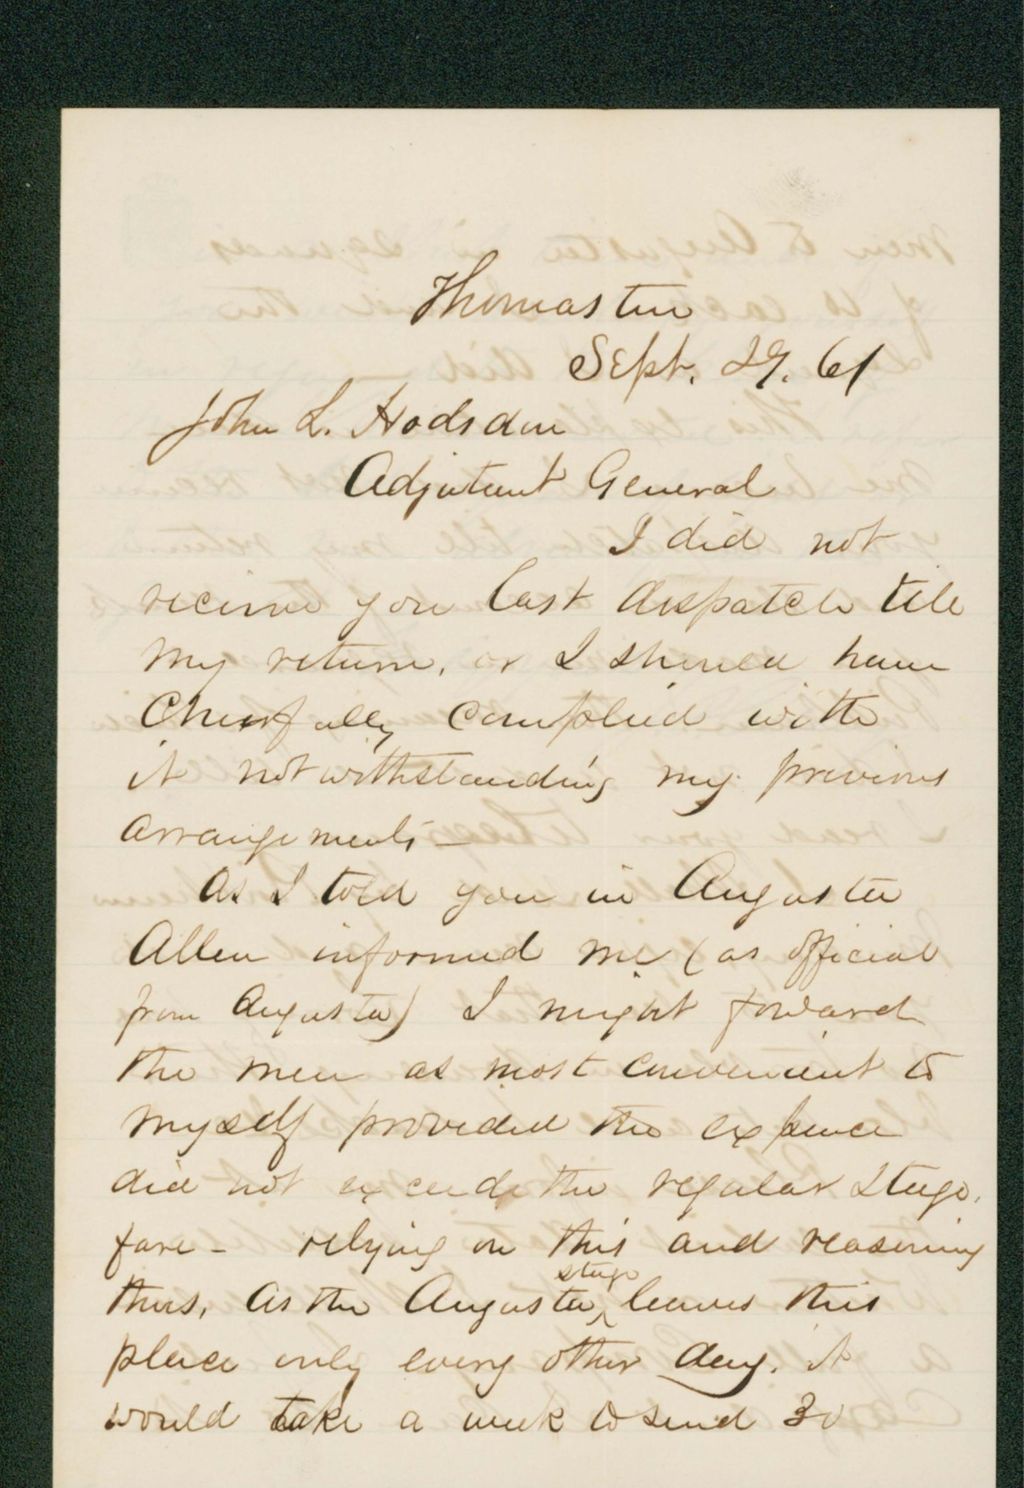 Thomaston
Sept. 29. 61
John L. Hodsdon
Adjutant General
I did not
receive you last dispatch till
my return, or I should have
Cheerfully complied with
it notwithstanding my previous
arrangements -
As I told you in Augusta
Allen informed me (as official
from Augusta) I might forward
the men as most convenient to
myself provided the expence
did not exceede the regular Stage
fare - relying on this and reasoning
thus, As the Augusta stage leaves this
place only every other day, it
would take a week to send 30